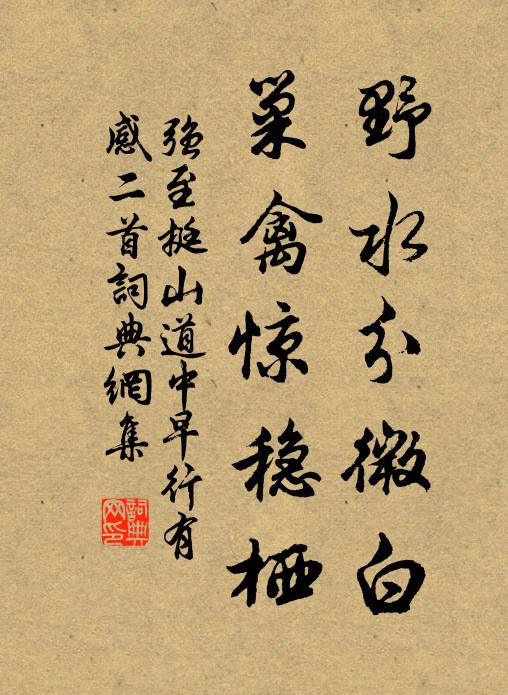 野水分微白
巢禽惊稳栖
强至挺山道中早行有
感二首詞典網集
詞典
网印